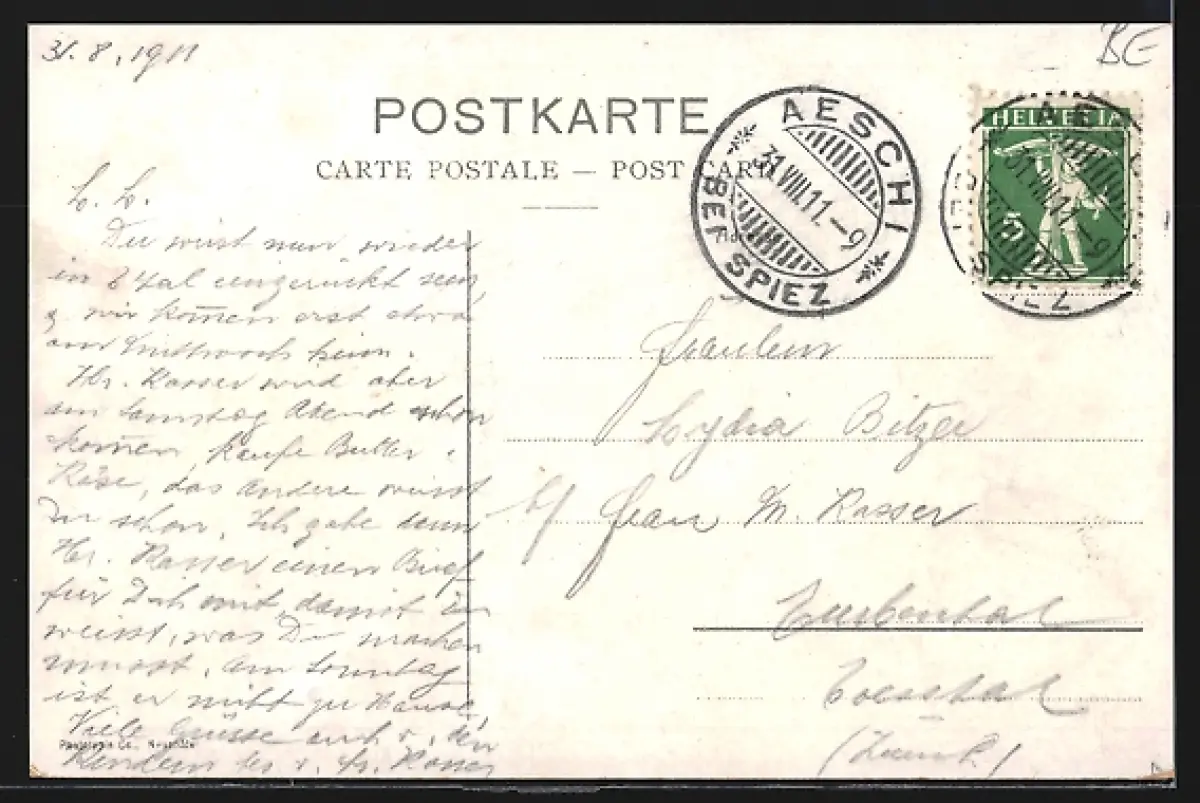 31. 8. 1911
BE
POSTKARTE
CARTE POSTALE — POST CARTE
AESCHI
BEI SPIEZ
31.VIII.11.-9
HELVETIA
5
AESCHI
31.VIII.11.-9
BEI SPIEZ
L. L.
Du wirst nun wieder
in eingerückt sein,
& wir kom̄en erst etwa
am Mittwoch heim.
Hr. Rasser wird aber
am Samstag Abend schon
kom̄en, kaufe Butter,
Käse, das andere weisst
Du schon. Ich gebe dann
Hr. Rasser einen Brief
für Dich mit, damit Du
weisst, was Du machen
musst, am Sonntag
ist er nicht zu Hause.
Viele Grüsse auch v. den
Kindern bes. v. Fr. Rasser
Fräulein
Lydia Bitzer
b/ Frau M. Rasser
Turbenthal
Toesstal
(Zürich)